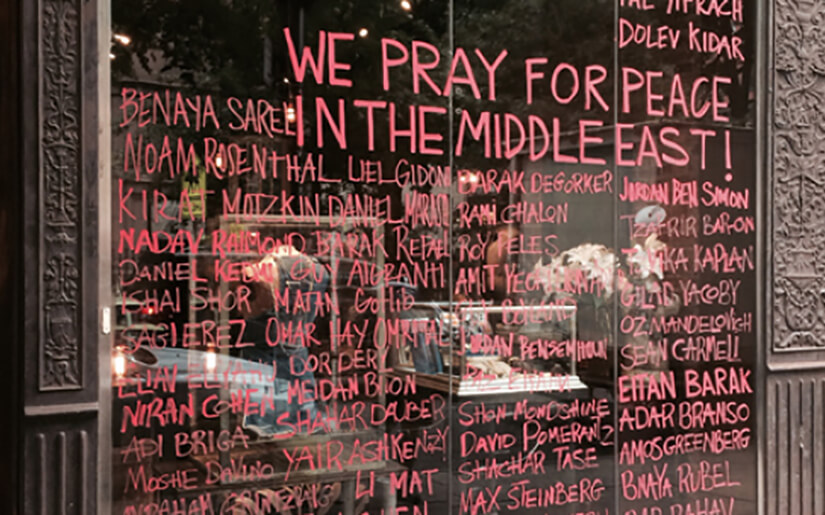 DOLEV KIDAR
WE PRAY FOR PEACE
IN THE MIDDLE EAST!
BENAYA SAREL
NOAM ROSENTHAL LIEL GIDONI
KIRAT MOTZKIN DANIEL
NADAV RAIMOND BARAK REFAEL
DANIEL GUY ALGRANTI
ISHAI SHOR MATAN GOTLIB
SAGI EREZ OMAR HAY
DOR DERY
MEIDAN BITON
NIRAN COHEN SHAHAR DAUBER
ADI BRIGA YAIR ASHKENAZY
MOSHE DAVINO LI MAT
BARAK DEGORKER
RAMI CHALON
ROY PELES
AMIT
JORDAN BENSEMHOUN
SHON MONDSHINE
DAVID POMERANTZ
SHACHAR TASE
MAX STEINBERG
JORDAN BEN SIMON
TZAFRIR BAR-ON
KAPLAN
GILAD YACOBY
OZ MANDELOVICH
SEAN CARMELI
EITAN BARAK
ADAR BRANSO
AMOS GREENBERG
BNAYA RUBEL
BAR RAHAV